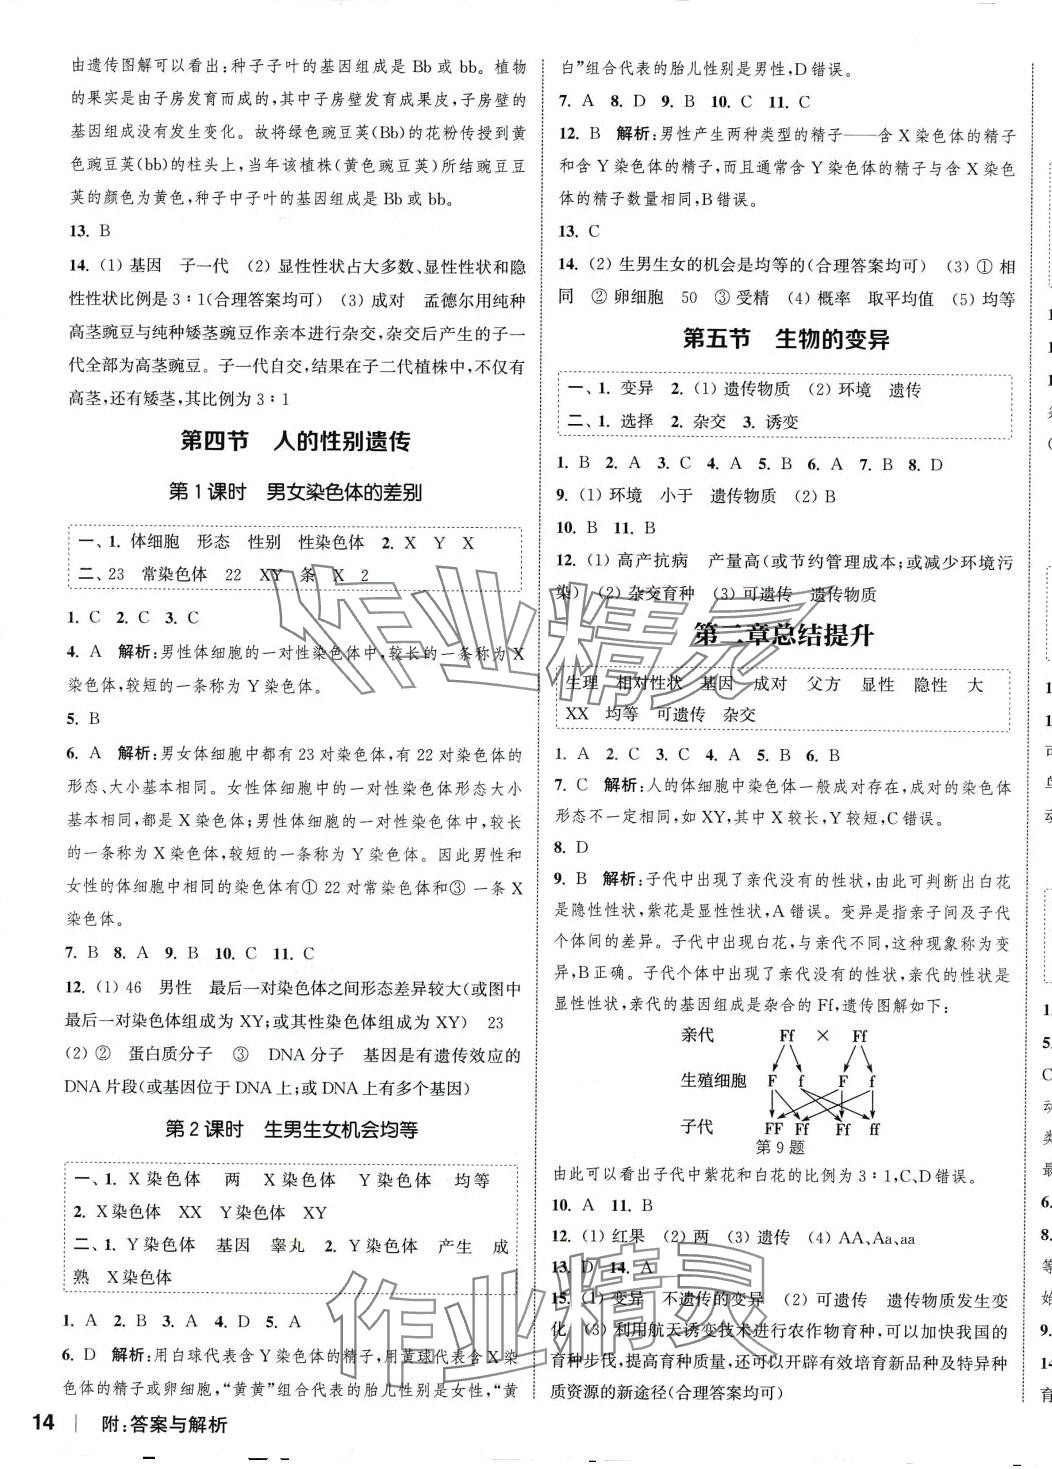 由遗传图解可以看出:种子子叶的基因组成是 Bb 或 bb。植物
的果实是由子房发育而成的,其中子房壁发育成果皮,子房壁的
基因组成没有发生变化。故将绿色豌豆荚(Bb)的花粉传授到黄
色豌豆荚(bb)的柱头上,当年该植株(黄色豌豆荚)所结豌豆豆
荚的颜色为黄色,种子中子叶的基因组成是 Bb 或 bb。
13. B
14. (1) 基因 子一代 (2) 显性性状占大多数、显性性状和隐
性性状比例是 3∶1(合理答案均可) (3) 成对 孟德尔用纯种
高茎豌豆与纯种矮茎豌豆作亲本进行杂交,杂交后产生的子一
代全部为高茎豌豆。子一代自交,结果在子二代植株中,不仅有
高茎,还有矮茎,其比例为 3∶1
第四节 人的性别遗传
第 1 课时 男女染色体的差别
一、1. 体细胞 形态 性别 性染色体 2. X Y X
二、23 常染色体 22 XY 条 X 2
1. C 2. C 3. C
4. A 解析:男性体细胞的一对性染色体中,较长的一条称为 X
染色体,较短的一条称为 Y 染色体。
5. B
6. A 解析:男女体细胞中都有 23 对染色体,有 22 对染色体的
形态、大小基本相同。女性体细胞中的一对性染色体形态大小
基本相同,都是 X 染色体;男性体细胞的一对性染色体中,较长
的一条称为 X 染色体,较短的一条称为 Y 染色体。因此男性和
女性的体细胞中相同的染色体有① 22 对常染色体和③ 一条 X
染色体。
7. B 8. A 9. B 10. C 11. C
12. (1) 46 男性 最后一对染色体之间形态差异较大(或图中
最后一对染色体组成为 XY;或其性染色体组成为 XY) 23
(2) ② 蛋白质分子 ③ DNA 分子 基因是有遗传效应的
DNA 片段(或基因位于 DNA 上;或 DNA 上有多个基因)
第 2 课时 生男生女机会均等
一、1. X 染色体 两 X 染色体 Y 染色体 均等
2. X 染色体 XX Y 染色体 XY
二、1. Y 染色体 基因 睾丸 2. Y 染色体 产生 成
熟 X 染色体
1. A 2. B 3. A 4. D 5. A
6. D 解析:用白球代表含 Y 染色体的精子,用黄球代表含 X 染
色体的精子或卵细胞,“黄黄”组合代表的胎儿性别是女性,“黄
14 附:答案与解析
白”组合代表的胎儿性别是男性,D 错误。
7. A 8. D 9. B 10. C 11. C
12. B 解析:男性产生两种类型的精子——含 X 染色体的精子
和含 Y 染色体的精子,而且通常含 Y 染色体的精子与含 X 染色
体的精子数量相同,B 错误。
13. C
14. (2) 生男生女的机会是均等的(合理答案均可) (3) ① 相
同 ② 卵细胞 50 ③ 受精 (4) 概率 取平均值 (5) 均等
第五节 生物的变异
一、1. 变异 2. (1) 遗传物质 (2) 环境 遗传
二、1. 选择 2. 杂交 3. 诱变
1. B 2. A 3. C 4. A 5. B 6. A 7. B 8. D
9. (1) 环境 小于 遗传物质 (2) B
10. B 11. B
12. (1) 高产抗病 产量高(或节约管理成本;或减少环境污
染) (2) 杂交育种 (3) 可遗传 遗传物质
第二章总结提升
生理 相对性状 基因 成对 父方 显性 隐性 大
XX 均等 可遗传 杂交
1. A 2. C 3. C 4. A 5. B 6. B
7. C 解析:人的体细胞中染色体一般成对存在,成对的染色体
形态不一定相同,如 XY,其中 X 较长,Y 较短,C 错误。
8. D
9. B 解析:子代中出现了亲代没有的性状,由此可判断出白花
是隐性性状,紫花是显性性状,A 错误。变异是指亲子间及子代
个体间的差异。子代中出现白花,与亲代不同,这种现象称为变
异,B 正确。子代个体中出现了亲代没有的性状,亲代的性状是
显性性状,亲代的基因组成是杂合的 Ff,遗传图解如下:
亲代 Ff × Ff
生殖细胞 F f F f
子代 FF Ff Ff ff
第 9 题
由此可以看出子代中紫花和白花的比例为 3∶1,C、D 错误。
10. A 11. B
12. (1) 红果 (2) 两 (3) 遗传 (4) AA、Aa、aa
13. D 14. A
15. (1) 变异 不遗传的变异 (2) 可遗传 遗传物质发生变
化 (3) 利用航天诱变技术进行农作物育种,可以加快我国的
育种步伐,提高育种质量,还可以开辟有效培育新品种及特异种
质资源的新途径(合理答案均可)
作业精灵
作业精灵